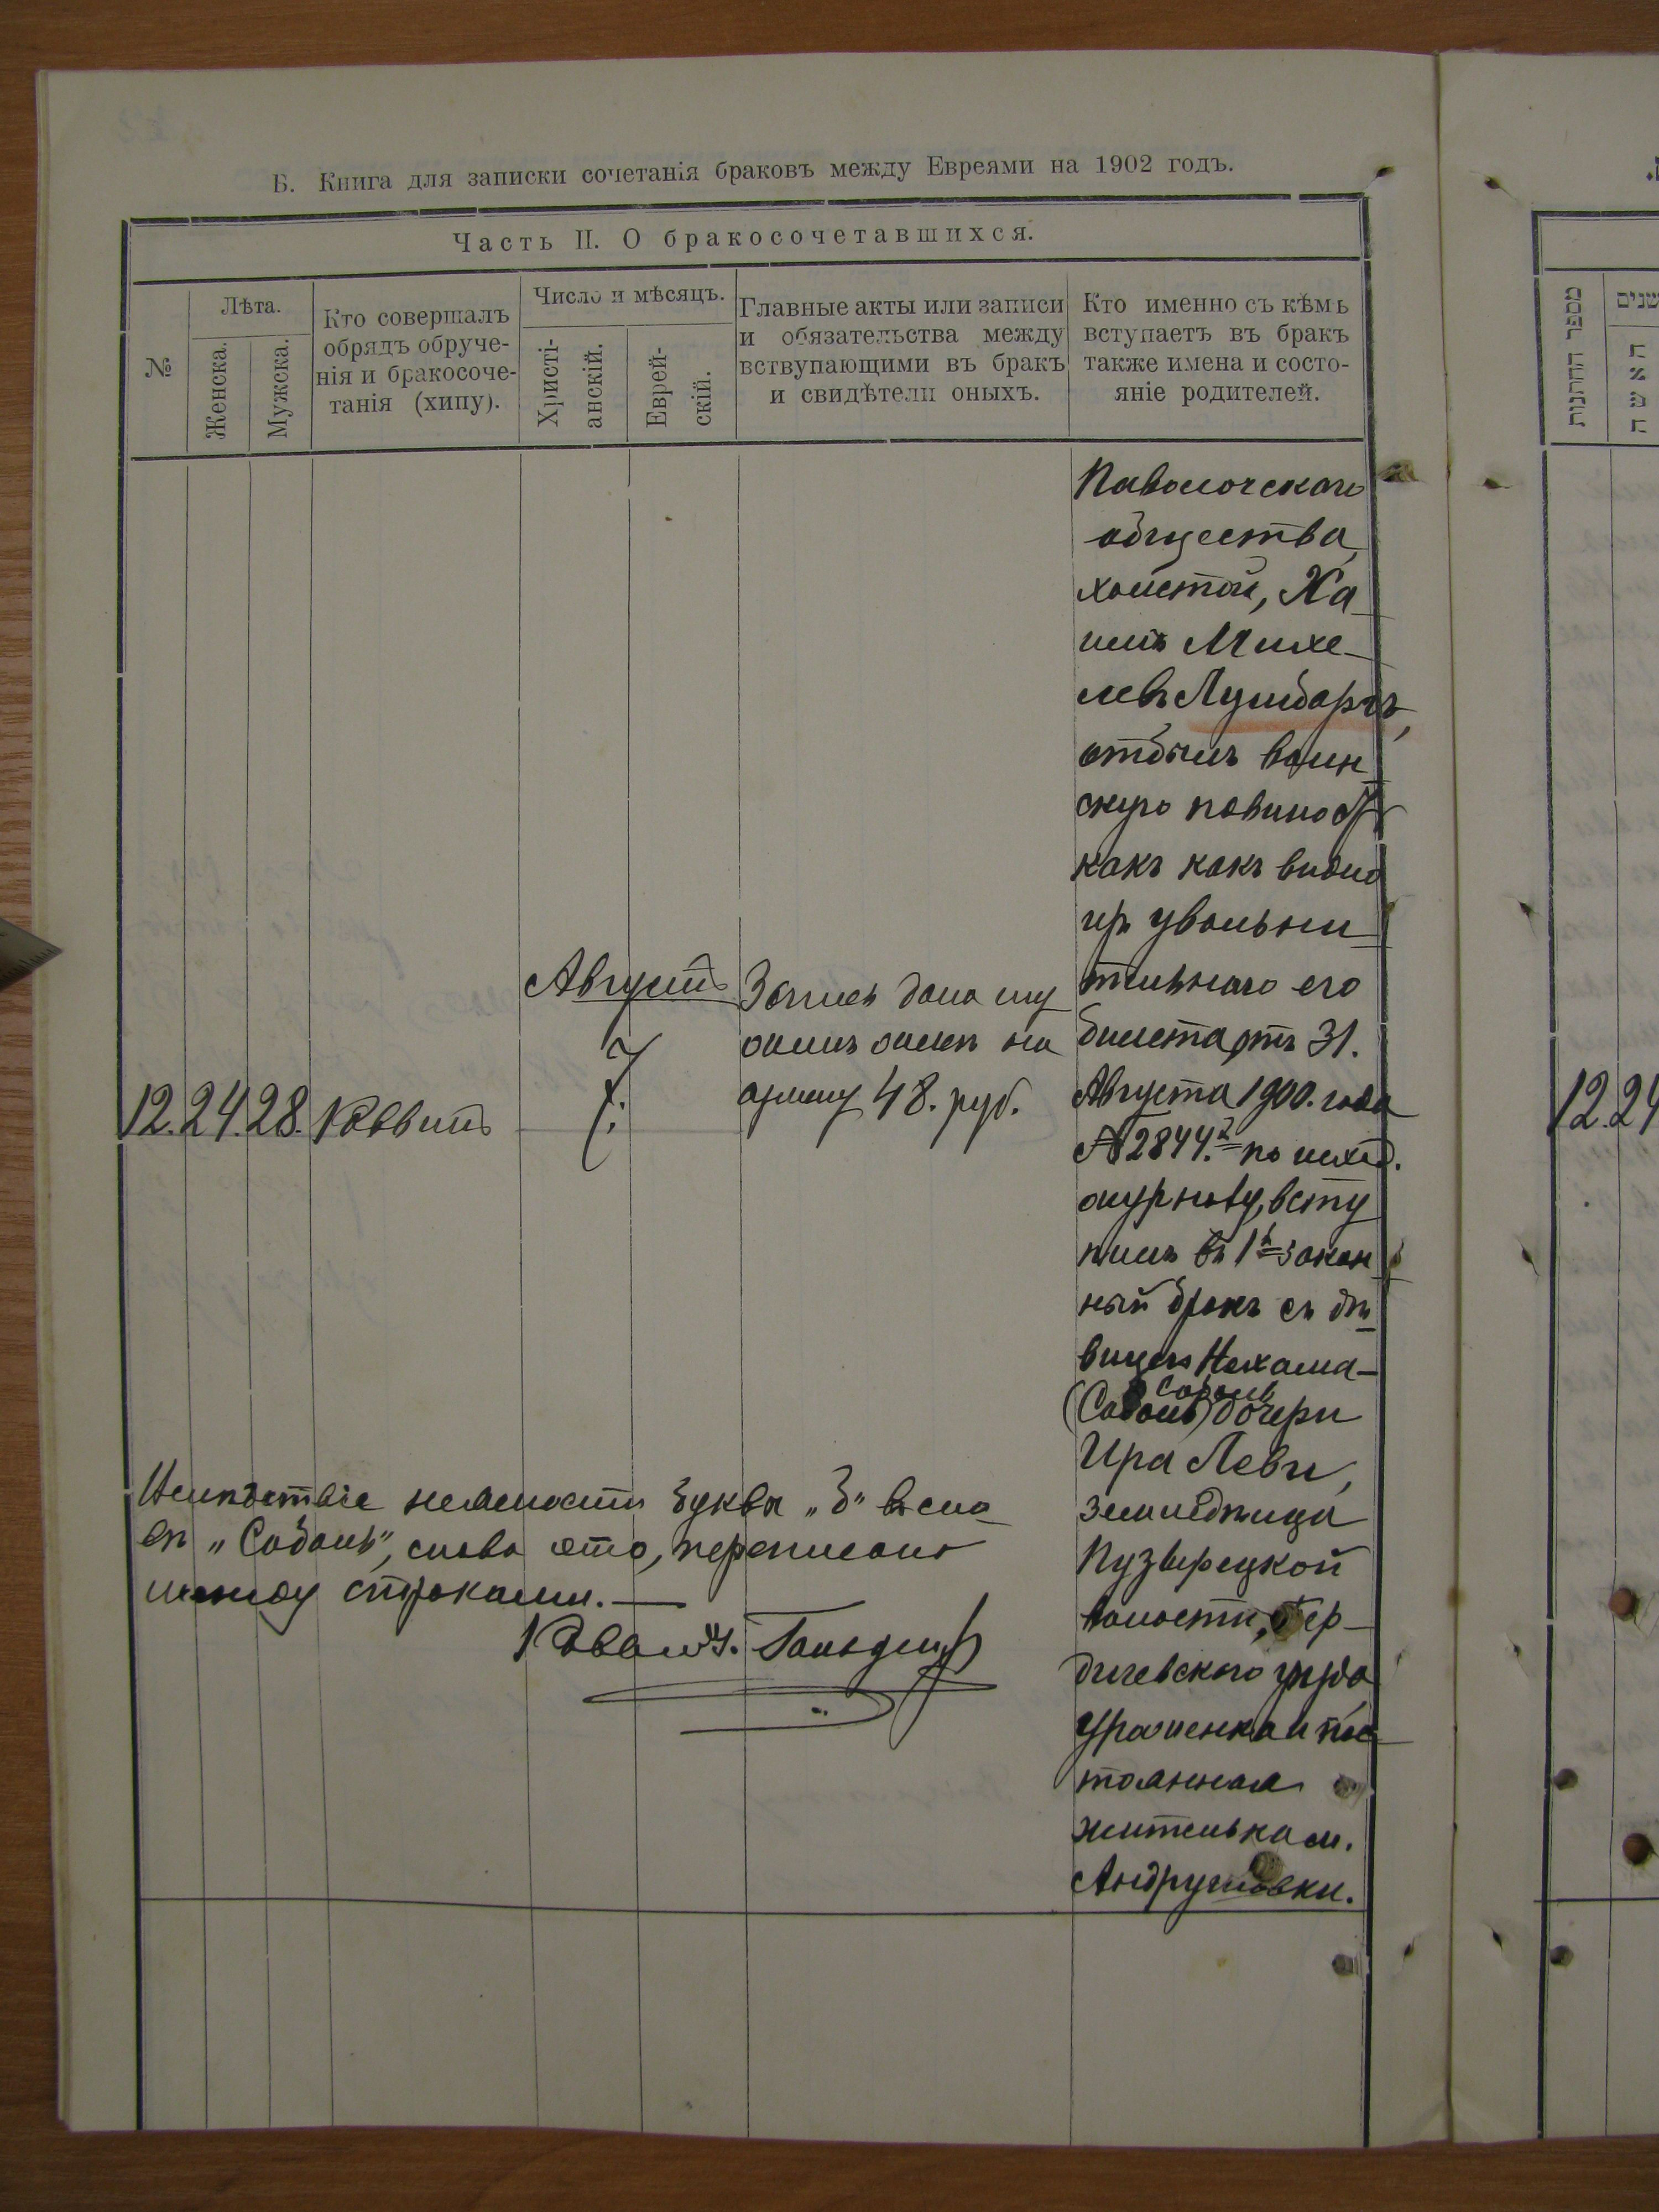 Б. Книга для записки сочетанія браковъ между Евреями на 1902 годъ.
Часть II. О бракосочетавшихся.
№
Лѣта.
Женска.
Мужска.
Кто совершалъ
обрядъ обруче-
нія и бракосоче-
танія (хипу).
Число и мѣсяцъ.
Христі-
анскій.
Еврей-
скій.
Главные акты или записи
и обязательства между
вствупающими въ бракъ
и свидѣтели оныхъ.
Кто именно съ кѣмъ
вступаетъ въ бракъ
также имена и состо-
яніе родителей.
12. 24. 28. Раввинъ
Августъ
7
Запись дана му
жемъ женѣ на
сумму 48. руб.
Паволочскаго
общества,
холостой, Ха
имъ Михе-
левъ
отбылъ воин
скую повиност
какъ какъ видно
изъ увольни
тельнаго его
билета отъ 31.
Августа 1900. года
№ 2844. по исход.
журналу, всту
пилъ въ 1й закон
ный бракъ съ дѣ
вицею Нехама-
Собаль
(Собаль) дочери
Ира Леви,
землевдѣльца
Пузырецкой
волости, Бер-
дичевскаго уѣзда
Уроженка и пос
тоянная
жителька м.
Андрушовки.
неясности буквы „б" въ сло
вѣ „Собаль", слово это, переписано
между строками. —
מספר החתונות
שנים
האשה
12. 24